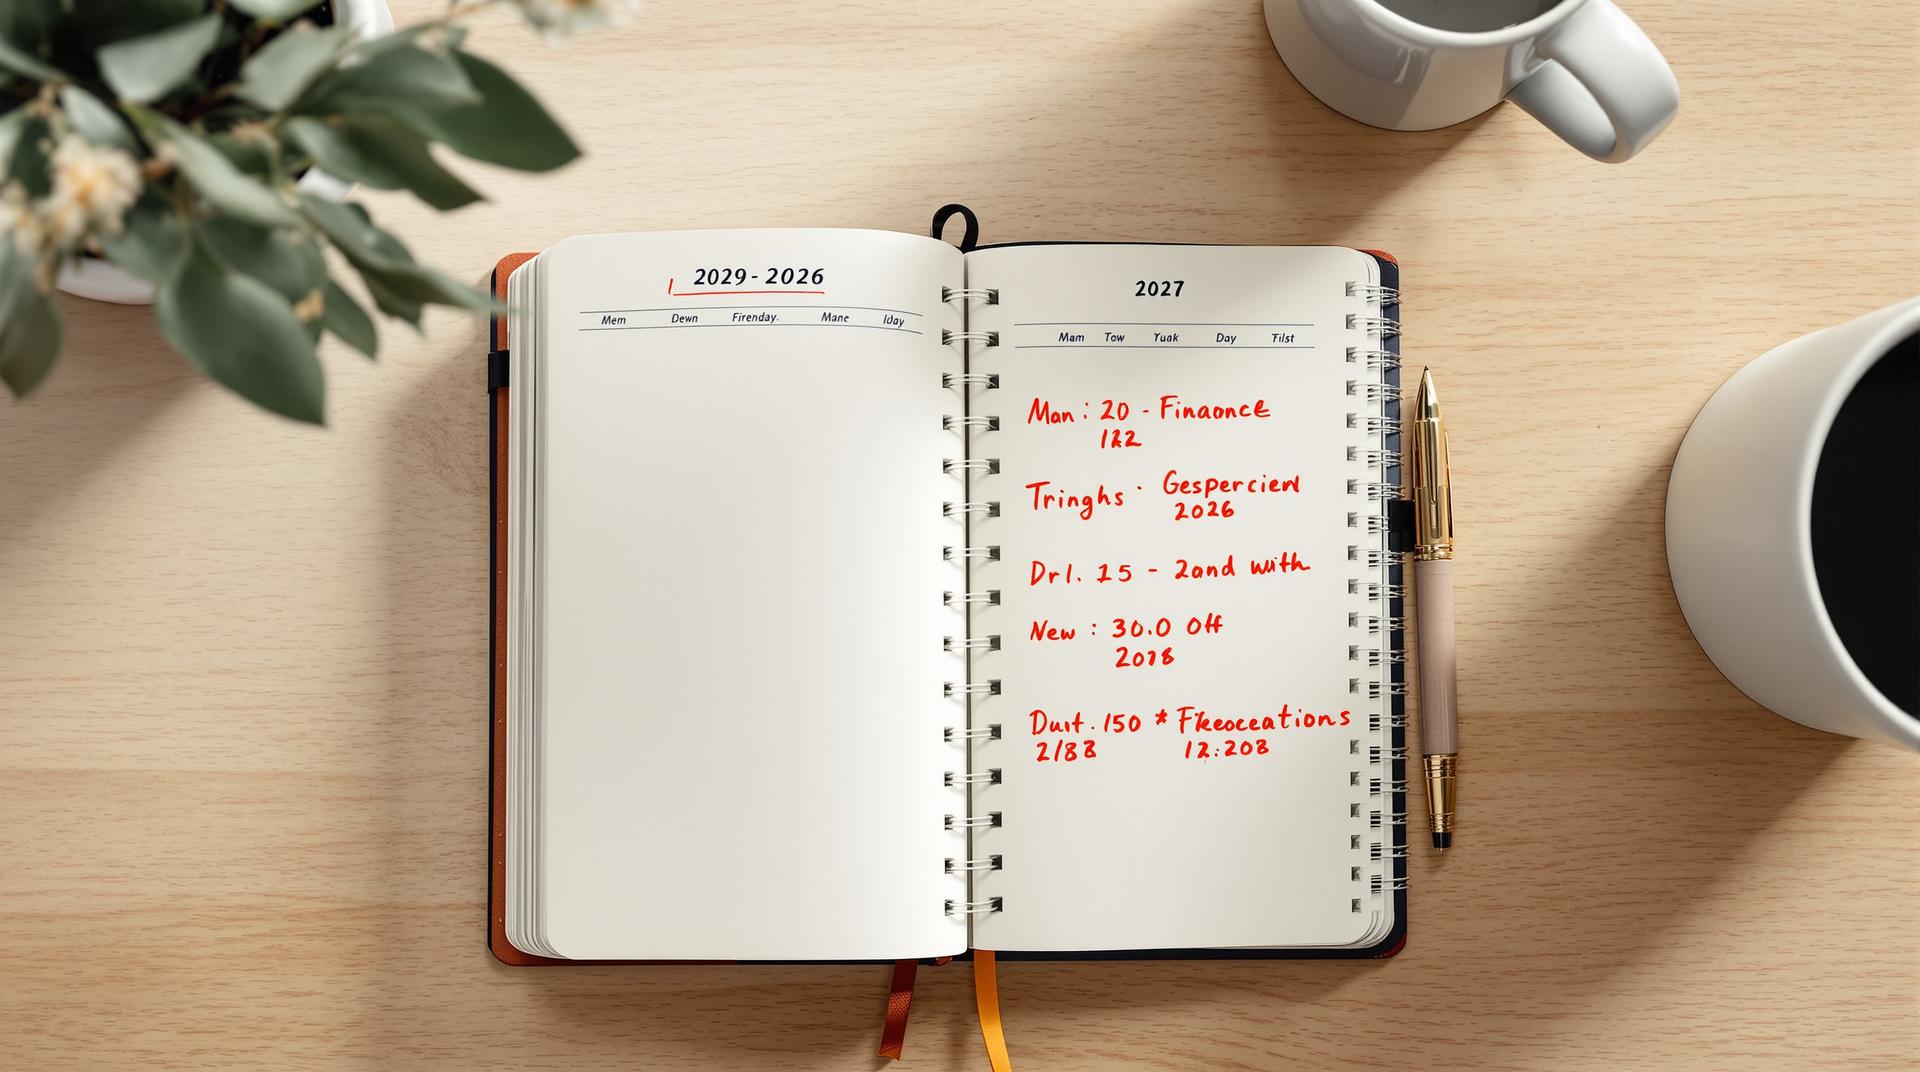 2029-2026
Mem Dewn Firenday. Mane Iday
2027
Mam Tow Yuak Day Tilst
Man: 20 - Finaonce
122
Tringhs · Gesperciend
2026
Drl. 15 - 2and with
New : 30.0 Off
2018
Duit. 150 * Fkeoceations
2/88 12:208